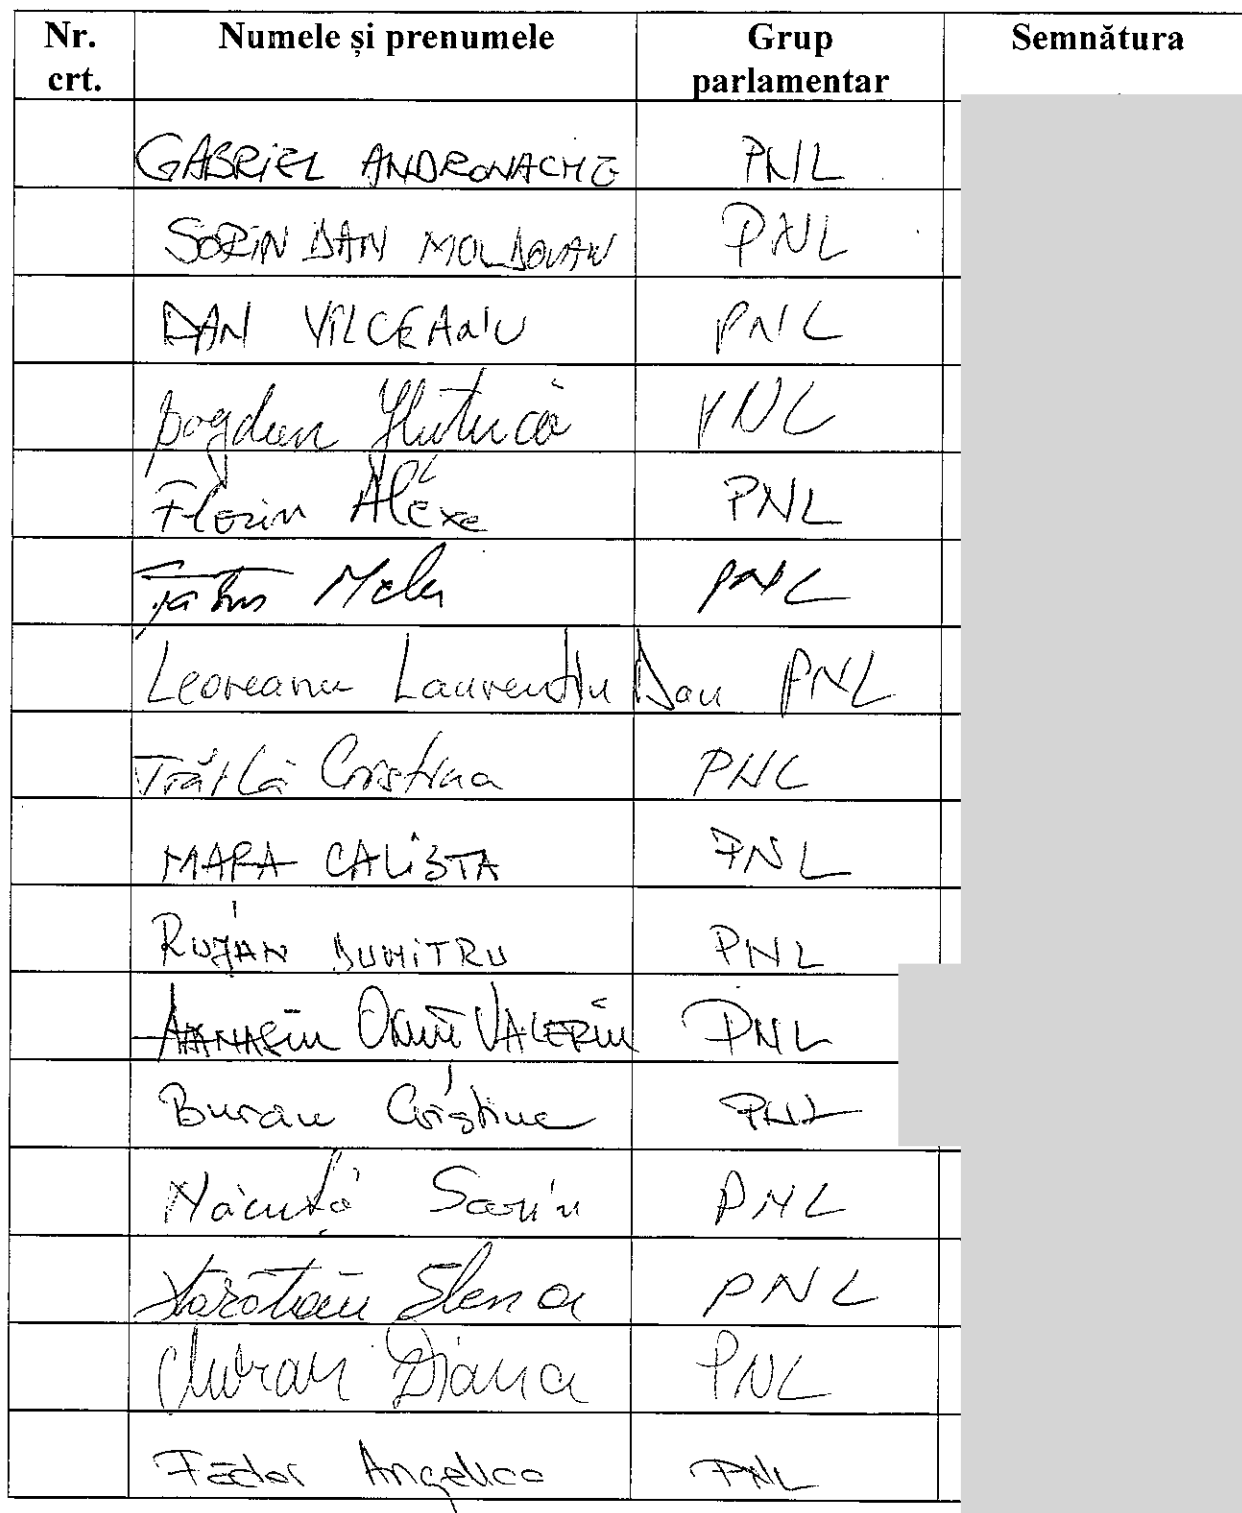 Nr. crt. Numele și prenumele Grup parlamentar Semnătura
GABRIEL ANDRONACHE PNL
SORIN DAN MOLDOVAN PNL
DAN VILCEANU PNL
Bogdan Huțucă PNL
Florin Alexe PNL
PNL
Leoreanu Laurențiu Dan PNL
Trăilă Cristina PNL
MARA CALISTA PNL
RUJAN DUMITRU PNL
VALERIU PNL
Buran Cristina PNL
Năcuță Sorin PNL
Elena PNL
Diana PNL
Fedor Angelica PNL